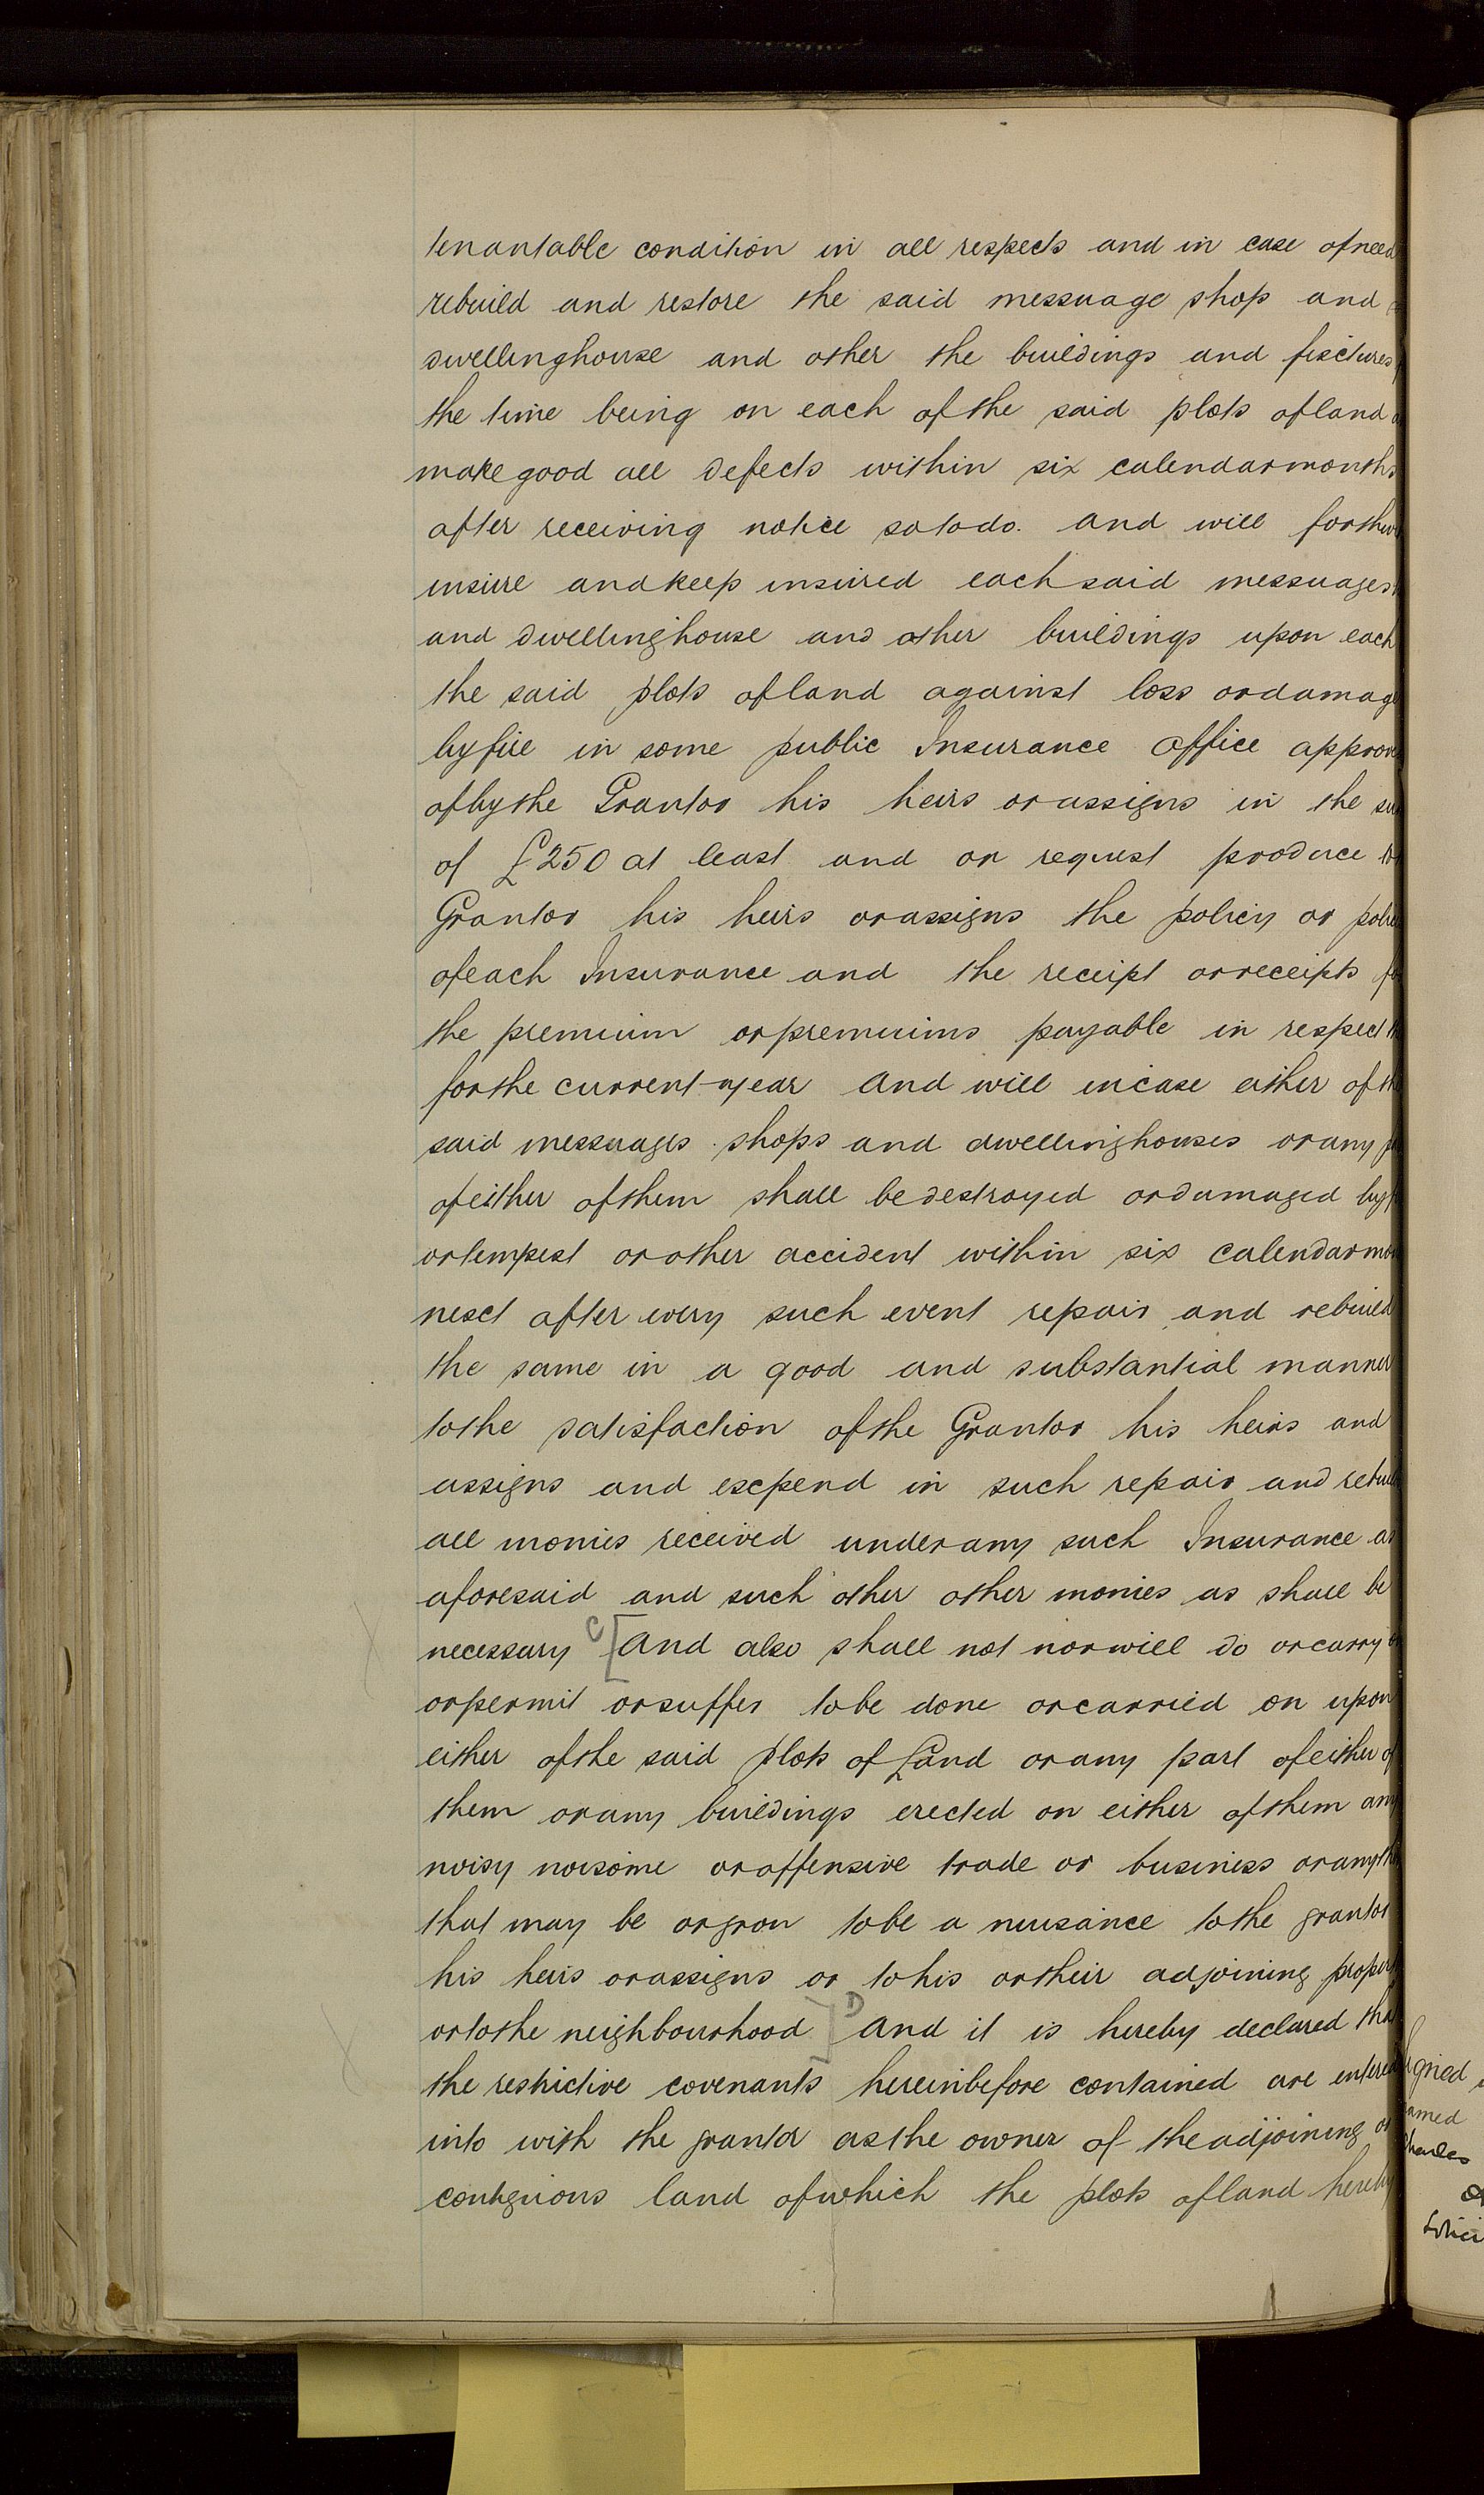 tenantable condition in all respects and in case of need
rebuild and restore the said messuage shop and
dwellinghouse and other the buildings and fixtures
the time being on each of the said plots of land
make good all defects within six calendar months
after receiving notice so to do. and will
insure and keep insured each said messuages
and dwellinghouse and other buildings upon each
the said plots of land against loss or damage
by fire in some public Insurance Office
of by the Grantor his heirs or assigns in the
of £250 at least and on request produce
Grantor his heirs or assigns the policy or
of each Insurance and the receipt or receipts
the premium or premiums payable in respect
for the current year and will in case either of
said messuages shops and dwellinghouses or any
of either of them shall be destroyed or damaged by
or tempest or other accident within six calendar
next after every such event repair and rebuild
the same in a good and substantial manner
to the satisfaction of the Grantor his heirs and
assigns and expend in such repair and
all monies received under any such Insurance as
aforesaid and such other other monies as shall be
necessary C [and also shall not nor will do or carry
or permit or suffer to be done or carried on upon
either of the said plots of Land or any part of either of
them or any buildings erected on either of them any
noisy noisome or offensive trade or business or
that may be or grow to be a nuisance to the grantor
his heirs or assigns or to his or their adjoining
or to the neighbourhood ] D and it is hereby declared
the restrictive covenants hereinbefore contained are entered
into with the grantor as the owner of the adjoining or
contiguous land of which the plots of land hereby